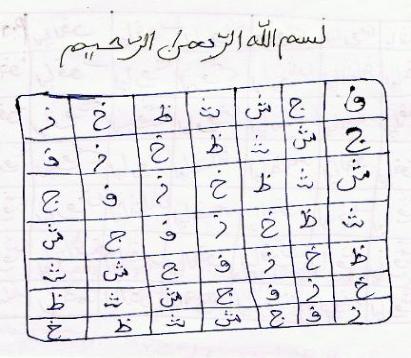 بسم الله الرحمن الرحيم
ف ج ش ث ظ خ ز
ج ش ث ظ خ ز ف
ش ث ظ خ ز ف ج
ث ظ خ ز ف ج ش
ظ خ ز ف ج ش ث
خ ز ف ج ش ث ظ
ز ف ج ش ث ظ خ